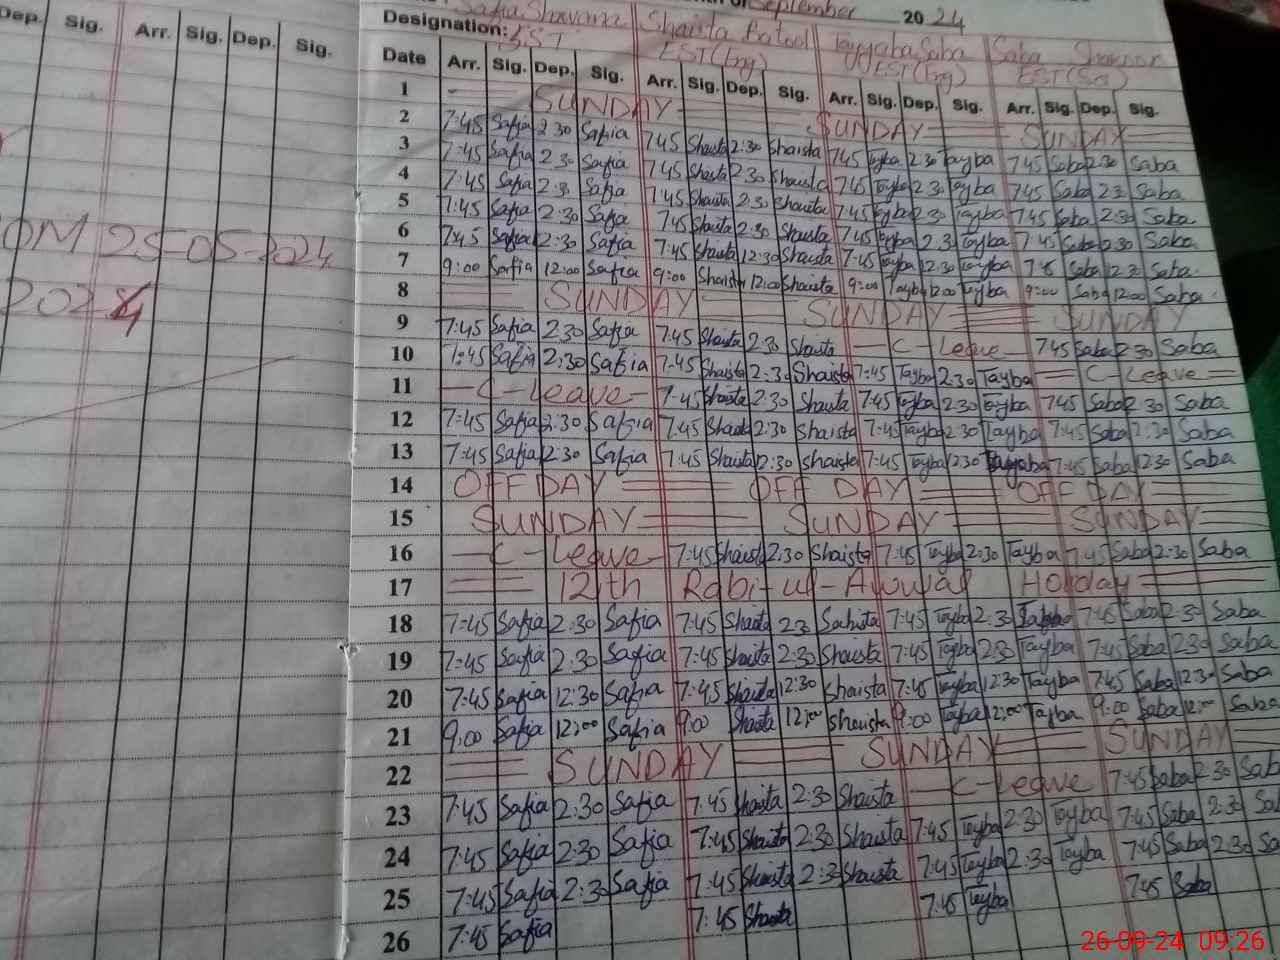 September 2024
Safia Shaista Batool Tayyaba Saba Saba
Designation: EST EST(Eng) EST(Eng) EST(Sci)
Dep. Sig. Arr. Sig. Dep. Sig.
Date Arr. Sig. Dep. Sig. Arr. Sig. Dep. Sig. Arr. Sig. Dep. Sig. Arr. Sig. Dep. Sig.
1 SUNDAY SUNDAY SUNDAY
2 7:45 Safia 2:30 Safia 7:45 Shaista 2:30 Shaista 7:45 Tayba 2:30 Tayba 7:45 Saba 2:30 Saba
3 7:45 Safia 2:30 Safia 7:45 Shaista 2:30 Shaista 7:45 Tayba 2:30 Tayba 7:45 Saba 2:30 Saba
4 7:45 Safia 2:30 Safia 7:45 Shaista 2:30 Shaista 7:45 Tayba 2:30 Tayba 7:45 Saba 2:30 Saba
5 7:45 Safia 2:30 Safia 7:45 Shaista 2:30 Shaista 7:45 Tayba 2:30 Tayba 7:45 Saba 2:30 Saba
6 7:45 Safia 12:30 Safia 7:45 Shaista 12:30 Shaista 7:45 Tayba 12:30 Tayba 7:45 Saba 12:30 Saba
7 9:00 Safia 12:00 Safia 9:00 Shaista 12:00 Shaista 9:00 Tayba 12:00 Tayba 9:00 Saba 12:00 Saba
OM 25-05-2024
2024
8 SUNDAY SUNDAY SUNDAY
9 7:45 Safia 2:30 Safia 7:45 Shaista 2:30 Shaista C-Leave 7:45 Saba 2:30 Saba
10 7:45 Safia 2:30 Safia 7:45 Shaista 2:30 Shaista 7:45 Tayba 2:30 Tayba C-Leave
11 C-Leave 7:45 Shaista 2:30 Shaista 7:45 Tayba 2:30 Tayba 7:45 Saba 2:30 Saba
12 7:45 Safia 2:30 Safia 7:45 Shaista 2:30 Shaista 7:45 Tayba 2:30 Tayba 7:45 Saba 2:30 Saba
13 7:45 Safia 12:30 Safia 7:45 Shaista 12:30 Shaista 7:45 Tayba 12:30 Tayyaba 7:45 Saba 12:30 Saba
14 OFF DAY OFF DAY OFF DAY
15 SUNDAY SUNDAY SUNDAY
16 C-Leave 7:45 Shaista 2:30 Shaista 7:45 Tayba 2:30 Tayba 7:45 Saba 2:30 Saba
17 12th Rabi-ul-Awwal Holiday
18 7:45 Safia 2:30 Safia 7:45 Shaista 2:30 Sahista 7:45 Tayba 2:30 7:45 Saba 2:30 Saba
19 7:45 Safia 2:30 Safia 7:45 Shaista 2:30 Shaista 7:45 Tayba 2:30 Tayba 7:45 Saba 2:30 Saba
20 7:45 Safia 12:30 Safia 7:45 Shaista 12:30 Shaista 7:45 Tayba 12:30 Tayba 7:45 Saba 12:30 Saba
21 9:00 Safia 12:00 Safia 9:00 Shaista 12:00 Shaista 9:00 Tayba 12:00 Tayba 9:00 Saba 12:00 Saba
22 SUNDAY SUNDAY SUNDAY
23 7:45 Safia 2:30 Safia 7:45 Shaista 2:30 Shaista C-Leave 7:45 Saba 2:30 Sab
24 7:45 Safia 2:30 Safia 7:45 Shaista 2:30 Shaista 7:45 Tayba 2:30 Tayba 7:45 Saba 2:30 Sa
25 7:45 Safia 2:30 Safia 7:45 Shaista 2:30 Shaista 7:45 Tayba 2:30 Tayba 7:45 Saba 2:30 Sa
26 7:45 Safia 7:45 Shaista 7:45 Tayba 7:45 Saba
26-09-24 09:26